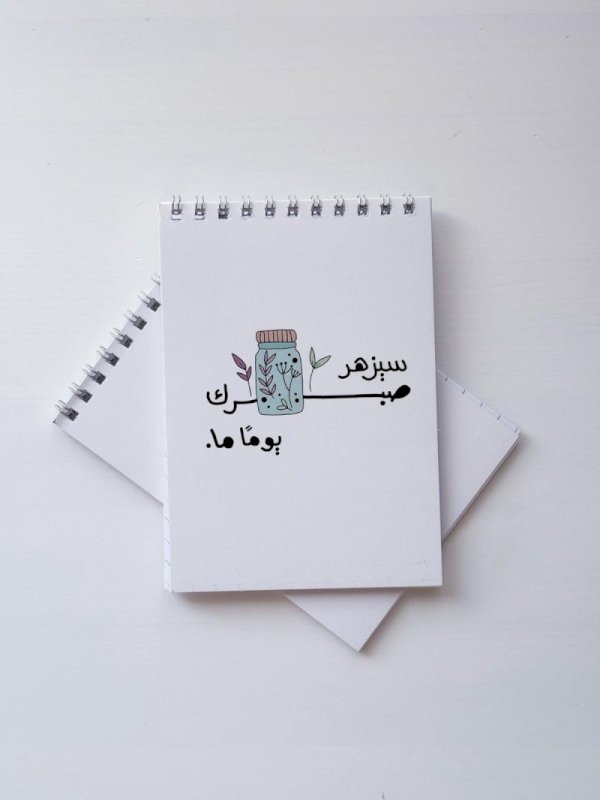 سيزهر
صبرك
يومًا ما.